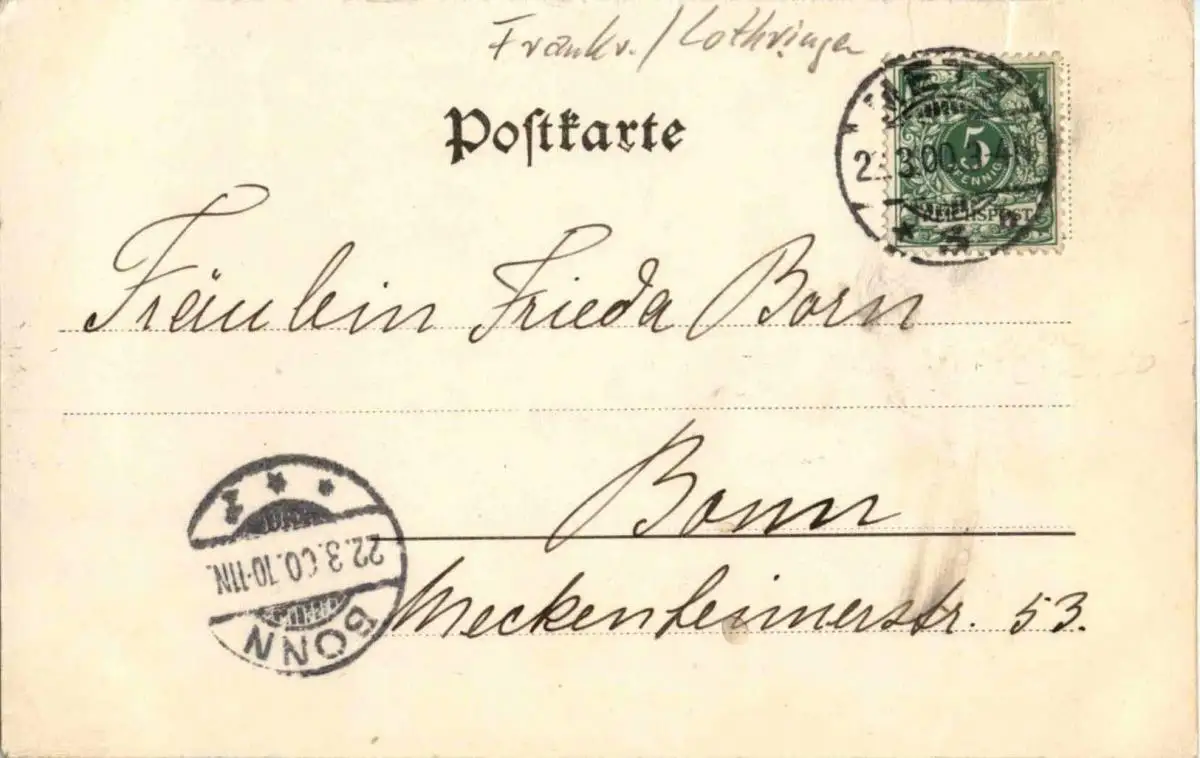 Frankr. / Lothringen
Postkarte
METZ
3.00.
5
PFENNIG
REICHSPOST
Fräulein Frieda Born
Bonn
Meckenheimerstr. 53.
22.3.00.10-11N.
BONN